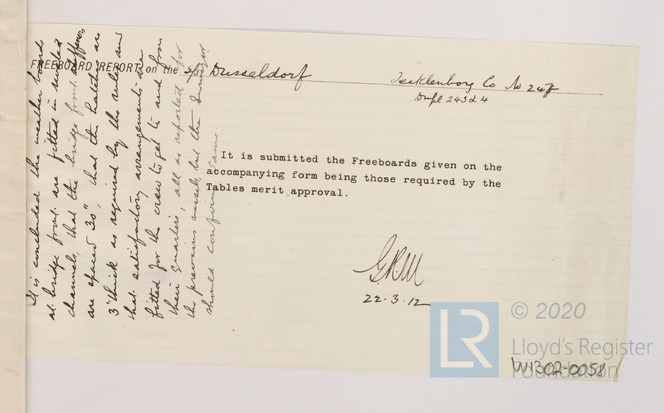 FREEBOARD REPORT on the S/S Dusseldorf
Tecklenborg Co No 247
Dupl 243 d 4
It is submitted the Freeboards given on the
accompanying form being those required by the
Tables merit approval.
22-3-12
It is concluded the weather boards
at bridge front are fitted in riveted
channels, that the bridge front stiffeners
are spaced 30", that the hatches are
3" thick as required by the rules and
that satisfactory arrangements are
fitted for the crew to get to and from
their quarters, all as reported for
the previous vessels, but the Surveyor
should confirm same.
LR
© 2020
Lloyd's Register
Foundation
W1302-0058